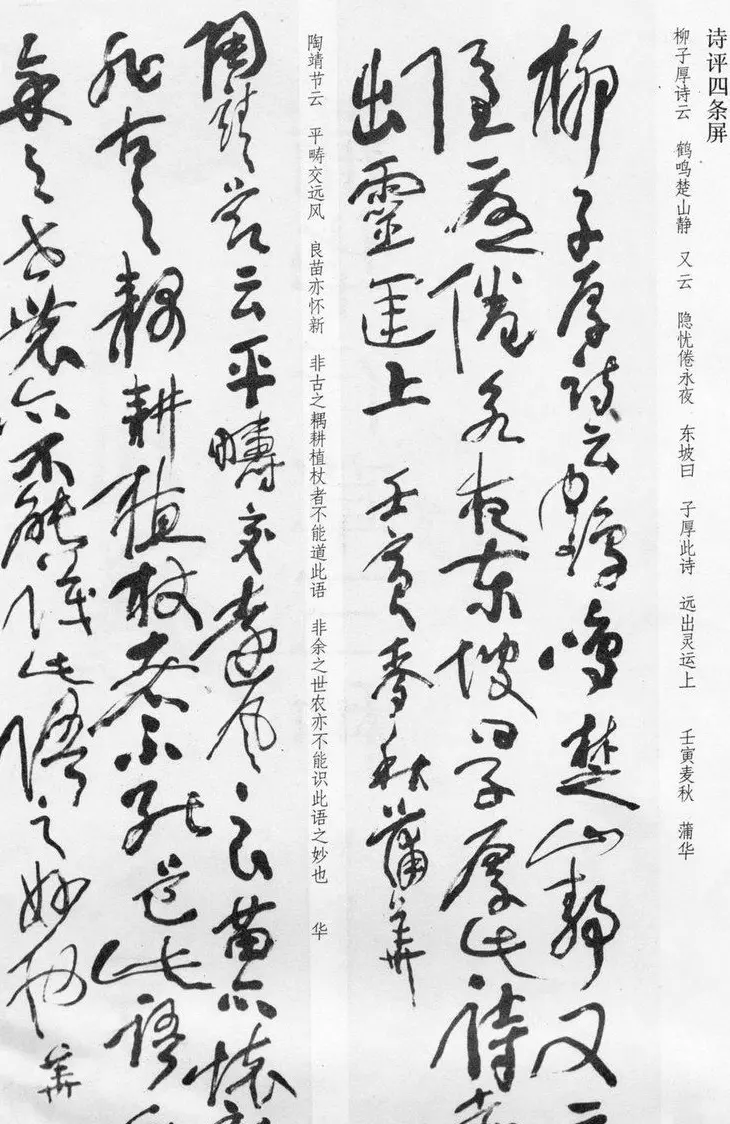 诗评四条屏
柳子厚诗云 鹤鸣楚山静 又云 隐忧倦永夜 东坡曰 子厚此诗 远出灵运上 壬寅麦秋 蒲华
柳子厚诗云鹤鸣楚山静又云
隐忧倦永夜东坡曰子厚此诗远
出靈運上 壬寅麥秋蒲華
陶靖节云 平畴交远风 良苗亦怀新 非古之耦耕植杖者不能道此语 非余之世农亦不能识此语之妙也 华
陶靖节云平畴交遠风良苗亦懷新
非古之耦耕植杖者不能道此語非
余之世農亦不能識此語之妙也 華